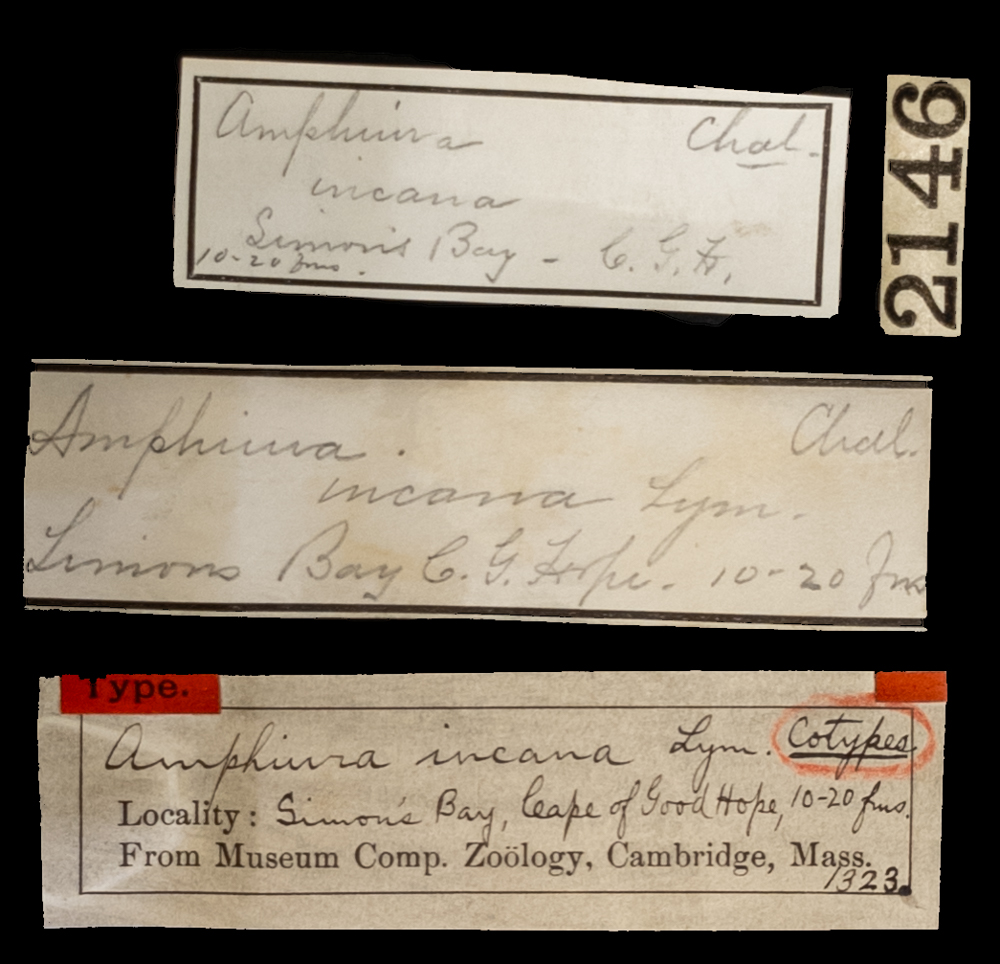 Amphiura Chal.
incana
Simon's Bay - C. G. H.
10-20 fms.
2146
Amphiura. Chal.
incana Lym.
Simons Bay C. G. Hope. 10-20 fms
Type.
Amphiura incana Lym. Cotypes
Locality: Simon's Bay, Cape of Good Hope, 10-20 fms.
From Museum Comp. Zoölogy, Cambridge, Mass.
1323.